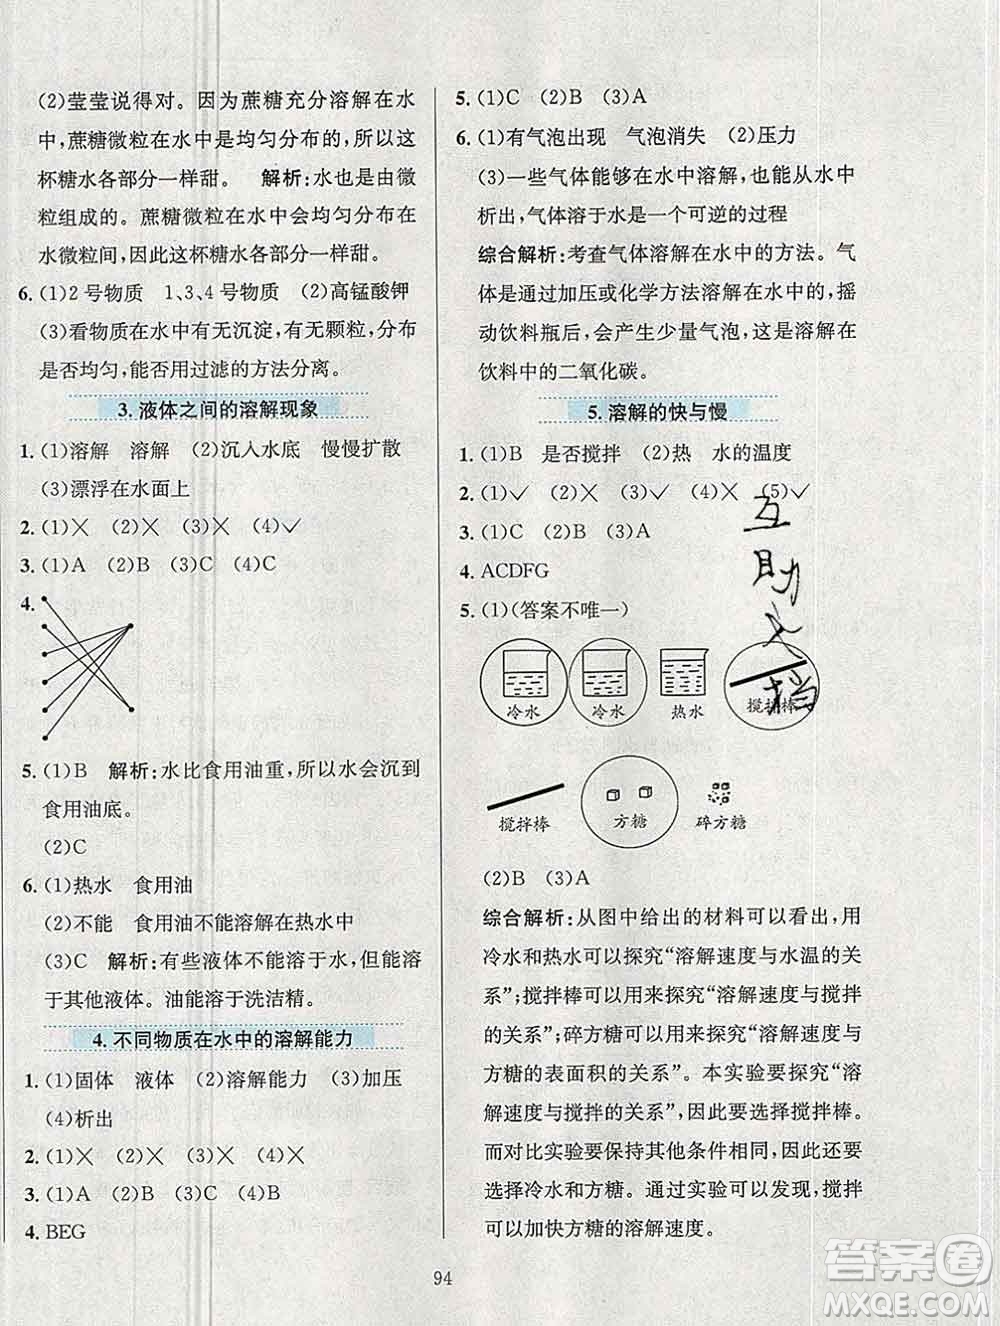 (2)莹莹说得对。因为蔗糖充分溶解在水
中,蔗糖微粒在水中是均匀分布的,所以这
杯糖水各部分一样甜。 解析:水也是由微
粒组成的。蔗糖微粒在水中会均匀分布在
水微粒间,因此这杯糖水各部分一样甜。
6. (1)2号物质 1、3、4号物质 (2)高锰酸钾
(3)看物质在水中有无沉淀,有无颗粒,分布
是否均匀,能否用过滤的方法分离。
3. 液体之间的溶解现象
1. (1)溶解 溶解 (2)沉入水底 慢慢扩散
(3)漂浮在水面上
2. (1)× (2)× (3)× (4)✓
3. (1)A (2)B (3)C (4)C
4.
5. (1)B 解析:水比食用油重,所以水会沉到
食用油底。
(2)C
6. (1)热水 食用油
(2)不能 食用油不能溶解在热水中
(3)C 解析:有些液体不能溶于水,但能溶
于其他液体。油能溶于洗洁精。
4. 不同物质在水中的溶解能力
1. (1)固体 液体 (2)溶解能力 (3)加压
(4)析出
2. (1)× (2)× (3)× (4)×
3. (1)A (2)B (3)C (4)B
4. BEG
5. (1)C (2)B (3)A
6. (1)有气泡出现 气泡消失 (2)压力
(3)一些气体能够在水中溶解,也能从水中
析出,气体溶于水是一个可逆的过程
综合解析:考查气体溶解在水中的方法。气
体是通过加压或化学方法溶解在水中的,摇
动饮料瓶后,会产生少量气泡,这是溶解在
饮料中的二氧化碳。
5. 溶解的快与慢
1. (1)B 是否搅拌 (2)热 水的温度
2. (1)✓ (2)× (3)✓ (4)× (5)✓
3. (1)C (2)B (3)A
4. ACDFG
5. (1)(答案不唯一)
冷水 冷水 热水 搅拌棒
搅拌棒 方糖 碎方糖
(2)B (3)A
综合解析:从图中给出的材料可以看出,用
冷水和热水可以探究“溶解速度与水温的关
系”;搅拌棒可以用来探究“溶解速度与搅拌
的关系”;碎方糖可以用来探究“溶解速度与
方糖的表面积的关系”。本实验要探究“溶
解速度与搅拌的关系”,故要选择搅拌棒。
而对比实验要保持其他条件相同,因此还要
选择冷水和方糖。通过实验可以发现,搅拌
可以加快方糖的溶解速度。
互
助
文
档
94
答案圈
MXQE.COM